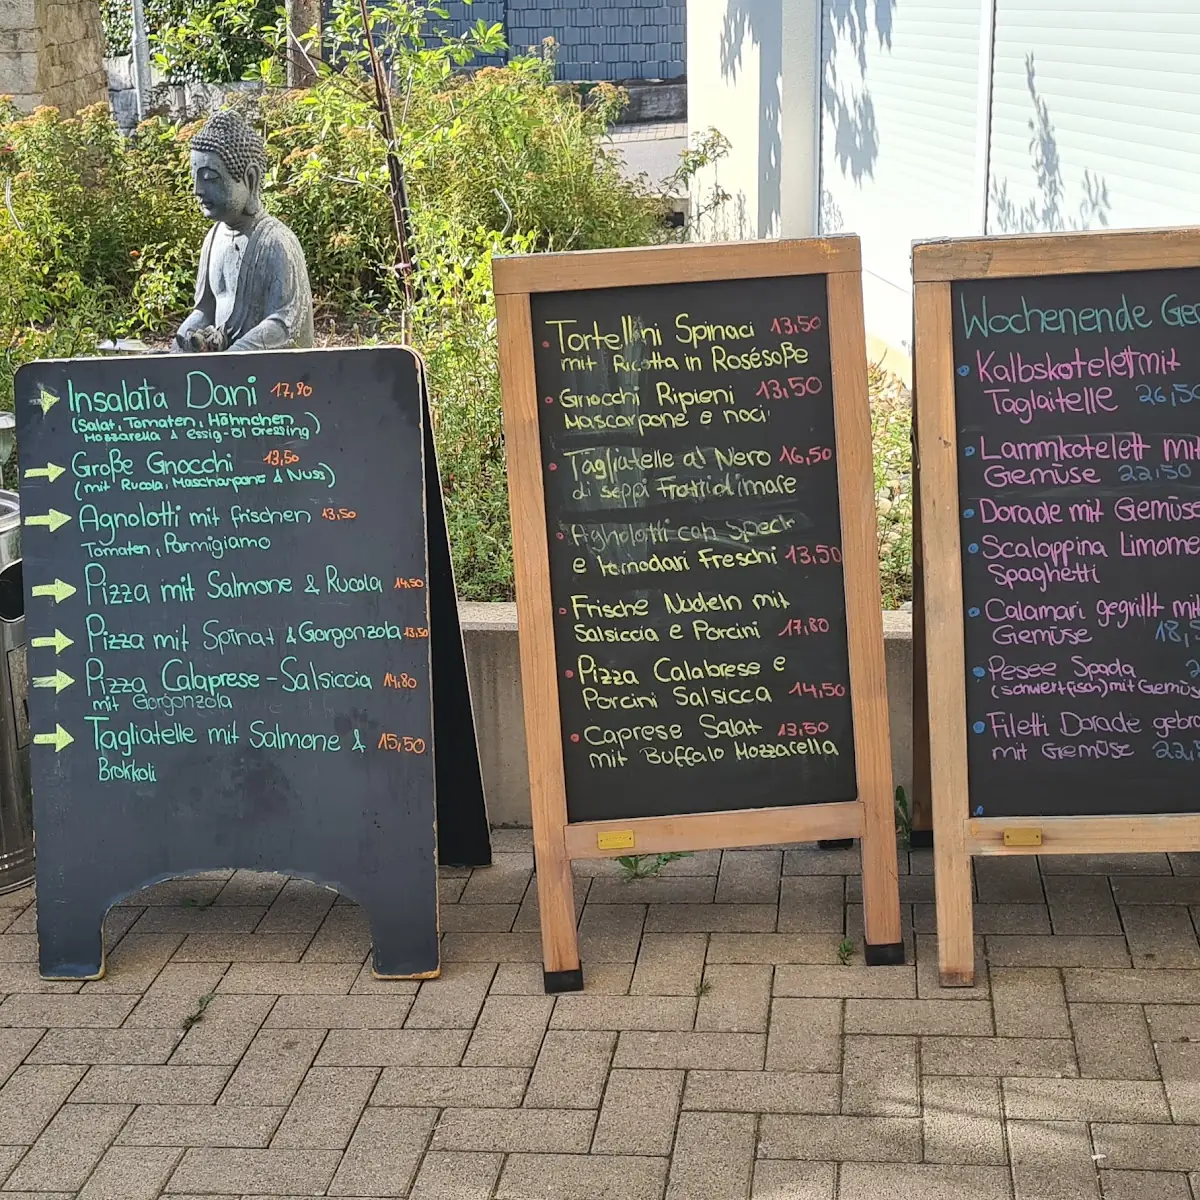 Insalata Dani 17,80
(Salat, Tomaten, Hähnchen
Mozzarella & Essig-Öl Dressing)
Große Gnocchi 13,50
(mit Rucola, Mascharpone & Nuss)
Agnolotti mit frischen 13,50
Tomaten, Parmigiamo
Pizza mit Salmone & Rucola 14,50
Pizza mit Spinat & Gorgonzola 13,50
Pizza Calaprese - Salsiccia 14,80
mit Gorgonzola
Tagliatelle mit Salmone & 15,50
Brokkoli
Tortellini Spinaci 13,50
mit Ricotta in Rosésoße
Gnocchi Ripieni 13,50
Mascarpone e noci
Tagliatelle al Nero 16,50
di seppi Frotti di mare
Agnolotti con Speck
e tomodari Freschi 13,50
Frische Nudeln mit
Salsiccia e Porcini 17,80
Pizza Calabrese e
Porcini Salsicca 14,50
Caprese Salat 13,50
mit Buffalo Mozzarella
Wochenende Ge
Kalbskotelett mit
Taglaitelle 26,50
Lammkotelett mit
Gemüse 22,50
Dorade mit Gemüse
Scaloppina Limone
Spaghetti
Calamari gegrillt mit
Gemüse 18,
Pesee Spada
(Schwertfisch) mit Gemüs
Filetti Dorade gebr
mit Gemüse 22,